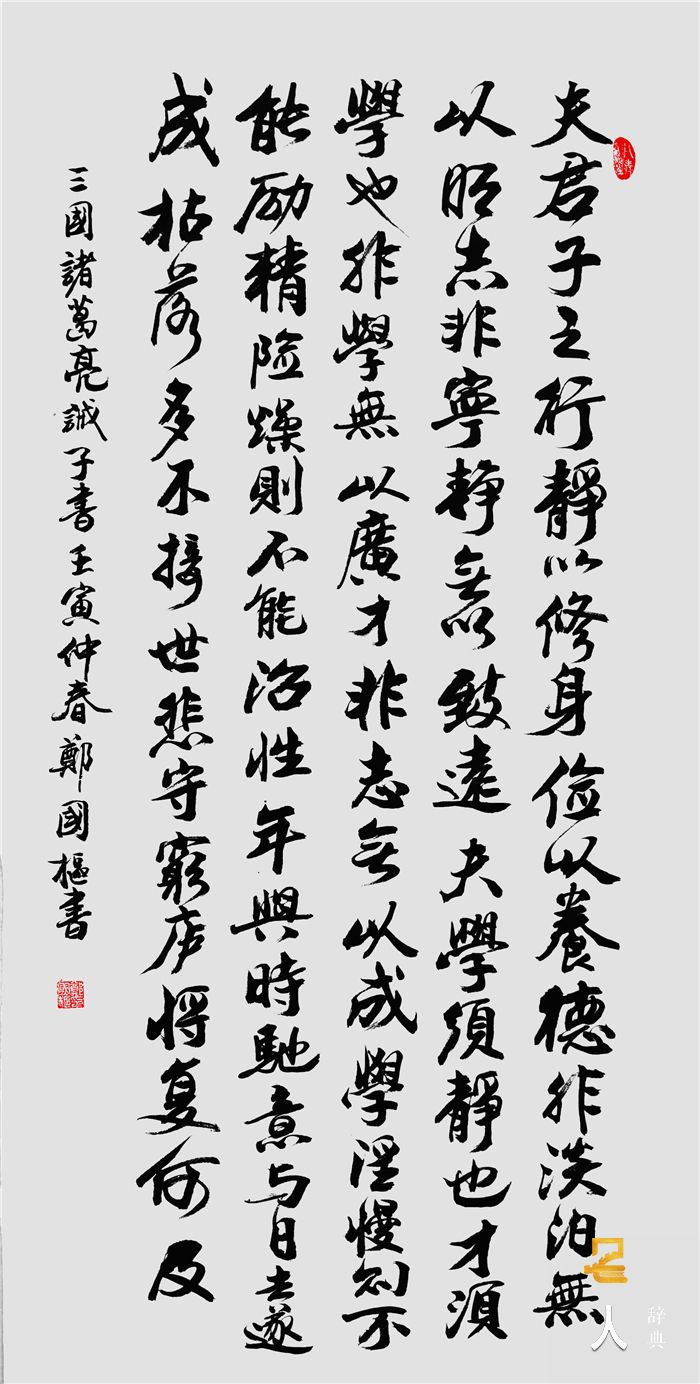 夫君子之行靜以修身俭以養德非淡泊無
以明志非寧靜無以致遠夫學須靜也才須
學也非學無以廣才非志無以成學淫慢则不
能励精险燥則不能治性年與時馳意与日去遂
成枯落多不接世悲守窮庐将复何及
三國諸葛亮誡子書壬寅仲春鄭國樞書
人
辞典